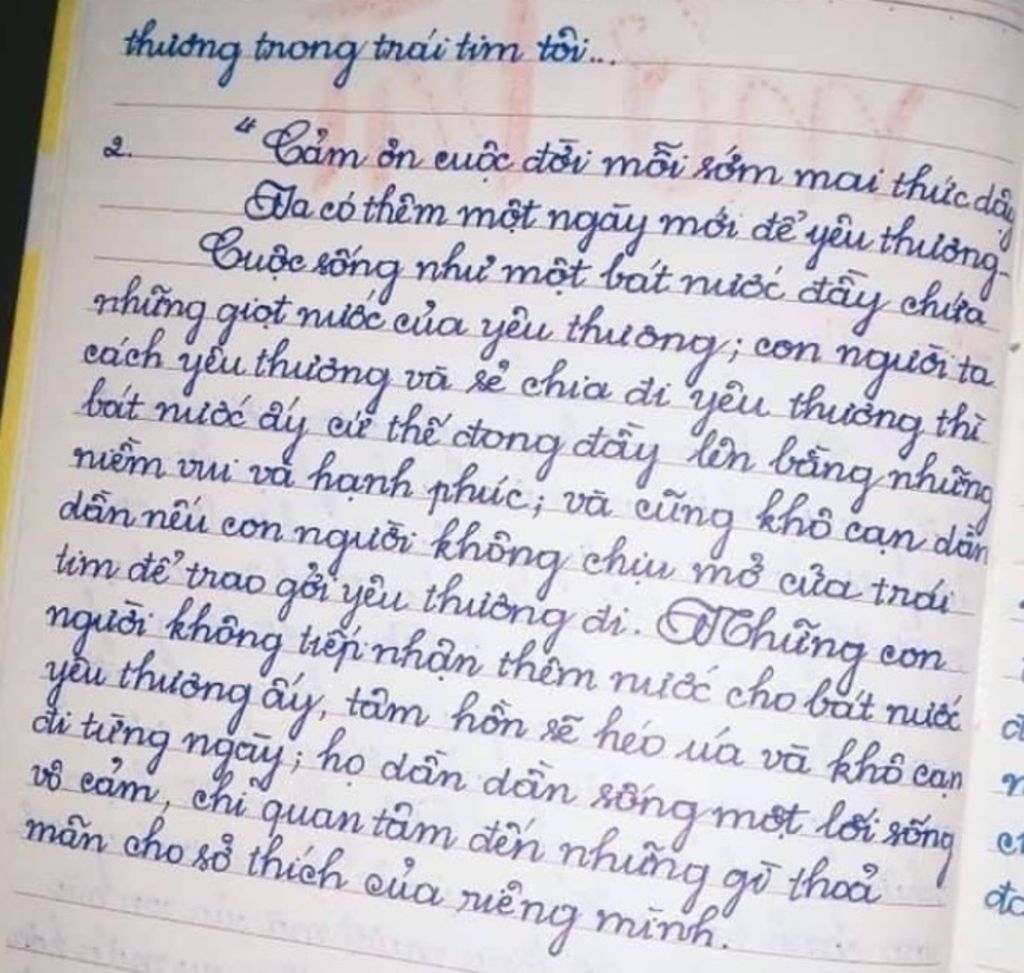 thương trong trái tim tôi...
2. "Cảm ơn cuộc đời mỗi sớm mai thức dậy
Ta có thêm một ngày mới để yêu thương"
Cuộc sống như một bát nước đầy chứa
những giọt nước của yêu thương; con người ta
cách yêu thương và sẻ chia đi yêu thương thì
bát nước ấy cứ thế đong đầy lên bằng những
niềm vui và hạnh phúc; và cũng khô cạn dần
dần nếu con người không chịu mở cửa trái
tim để trao gởi yêu thương đi. Những con
người không tiếp nhận thêm nước cho bát nước
yêu thương ấy, tâm hồn sẽ héo úa và khô cạn
đi từng ngày; họ dần dần sống một lối sống
vô cảm, chỉ quan tâm đến những gì thoả
mãn cho sở thích của riêng mình.